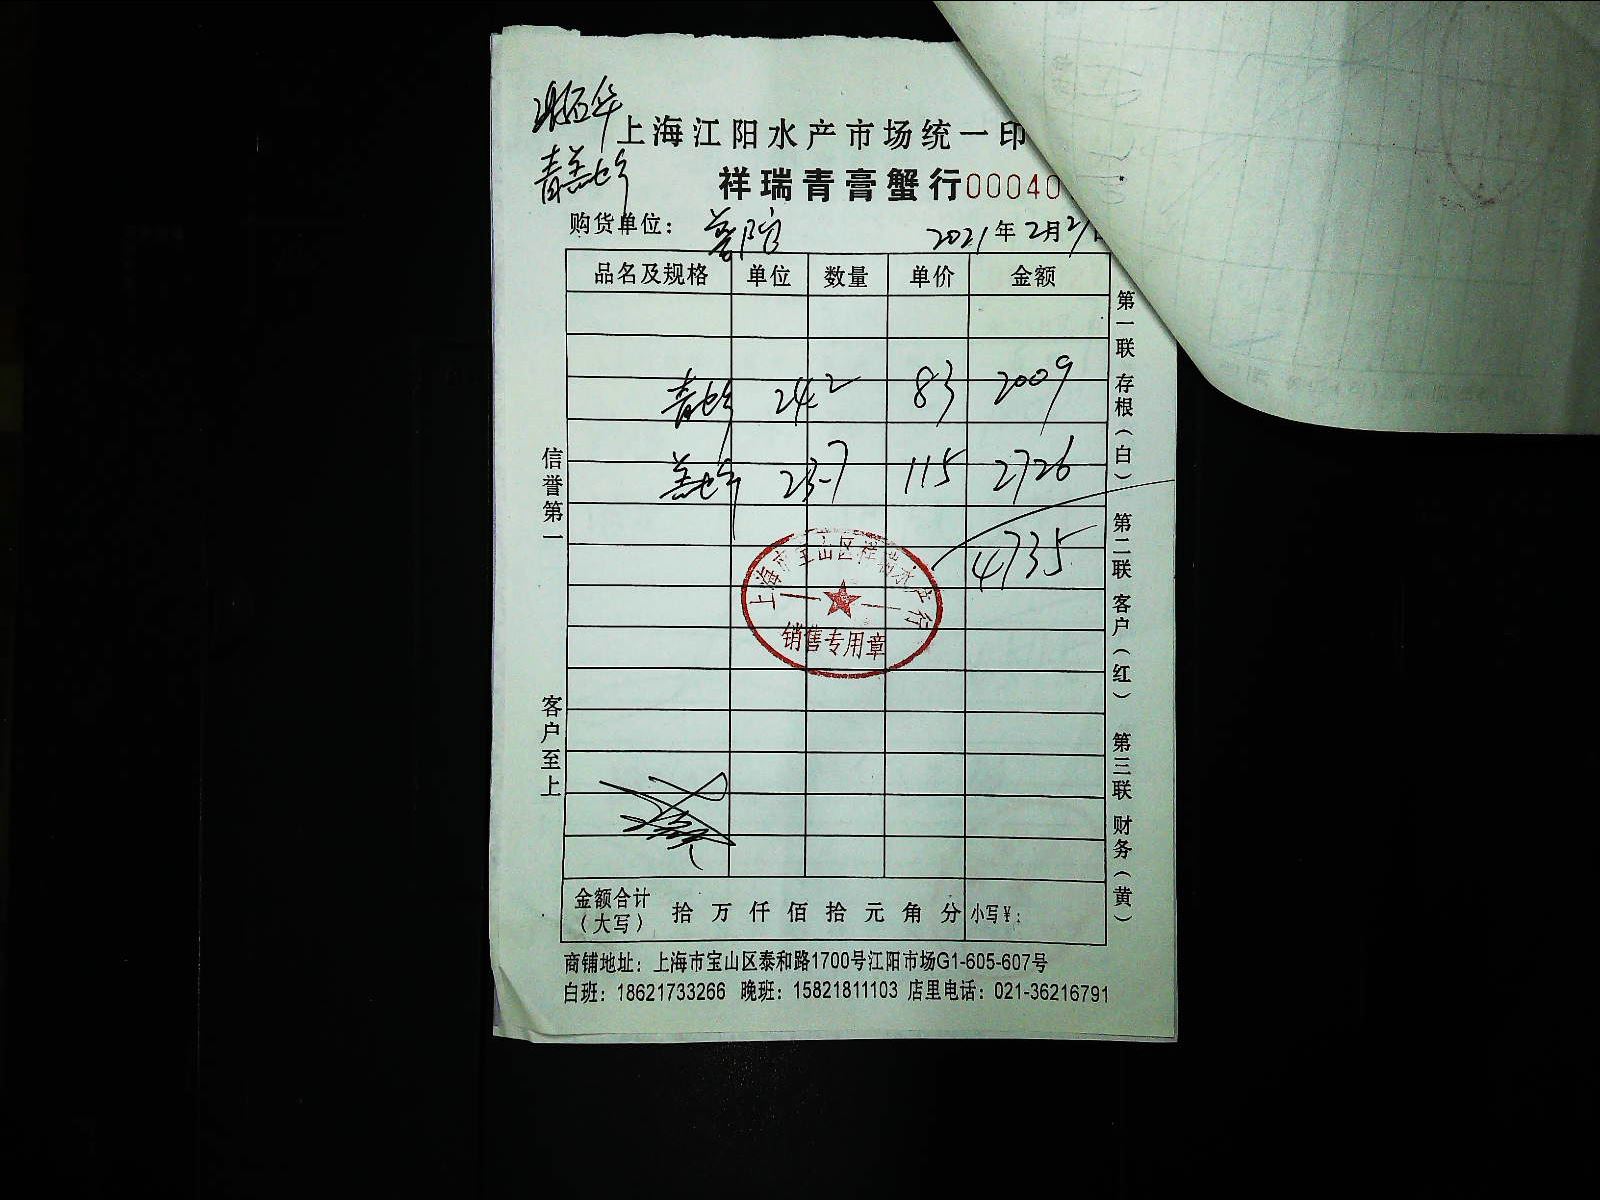 上海江阳水产市场统一印
祥瑞青膏蟹行00040
购货单位：
2021年2月21日
品名及规格 单位 数量 单价 金额
24.2 83 2009
23.7 115 2726
4735
上海市宝山区祥瑞水产行
销售专用章
信誉第一
客户至上
第一联 存根（白） 第二联 客户（红） 第三联 财务（黄）
金额合计（大写） 拾 万 仟 佰 拾 元 角 分 小写¥：
商铺地址：上海市宝山区泰和路1700号江阳市场G1-605-607号
白班：18621733266 晚班：15821811103 店里电话：021-36216791